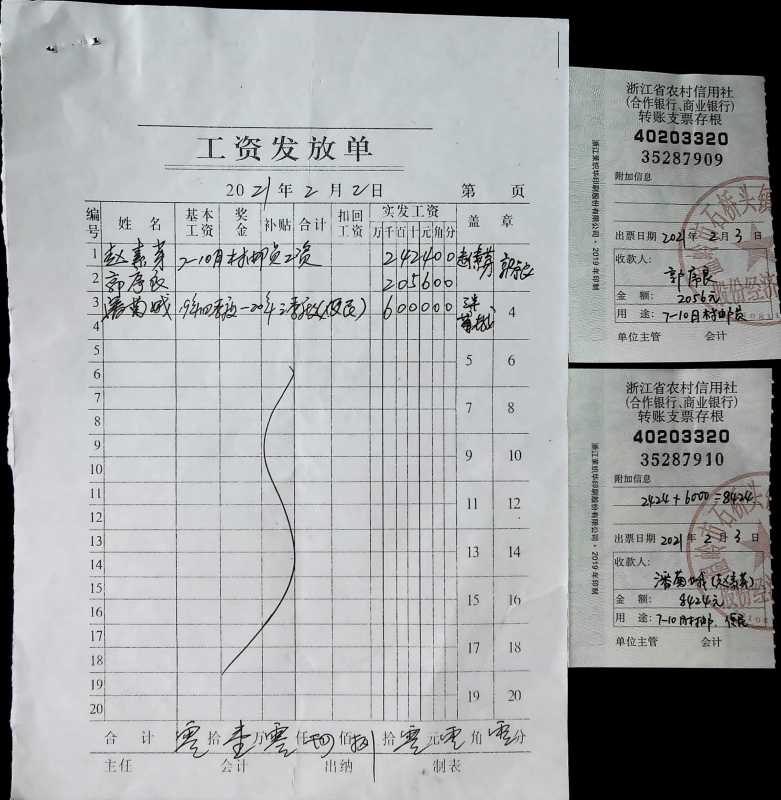 工资发放单
2021年2月2日 第 页
编号 姓名 基本工资 奖金 补贴 合计 扣回工资 实发工资 盖章
万千百十元角分
1 赵素芳 7-10月村邮员工资 242400 赵素芳 郭序良
2 郭序良 205600
3 潘菊城 19年四季度-20年三季度(便民) 600000
4 4
5 5
6 6
7 7
8 8
9 9
10 10
11 11
12 12
13 13
14 14
15 15
16 16
17 17
18 18
19 19
20 20
合计 零拾壹万零仟 佰 拾零元零角零分
主任 会计 出纳 制表
浙江省农村信用社
(合作银行、商业银行)
转账支票存根
40203320
35287909
附加信息
出票日期 2021年2月3日
收款人:
郭序良
金额: 2056元
用途: 7-10月村邮员
单位主管 会计
浙江省农村信用社
(合作银行、商业银行)
转账支票存根
40203320
35287910
附加信息
2424+6000=8424
出票日期 2021年2月3日
收款人:
潘菊城(赵素芳)
金额: 8424元
用途: 7-10月村邮、便民
单位主管 会计